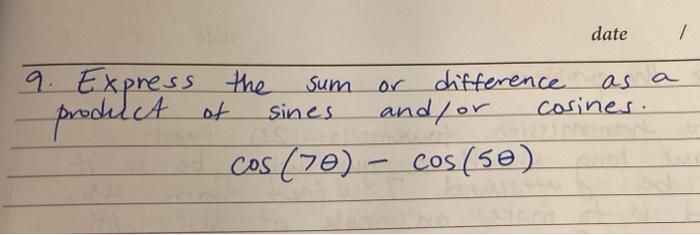 date /
9. Express the sum or difference as a
product of sines and/or cosines.
cos(7θ) - cos(5θ)